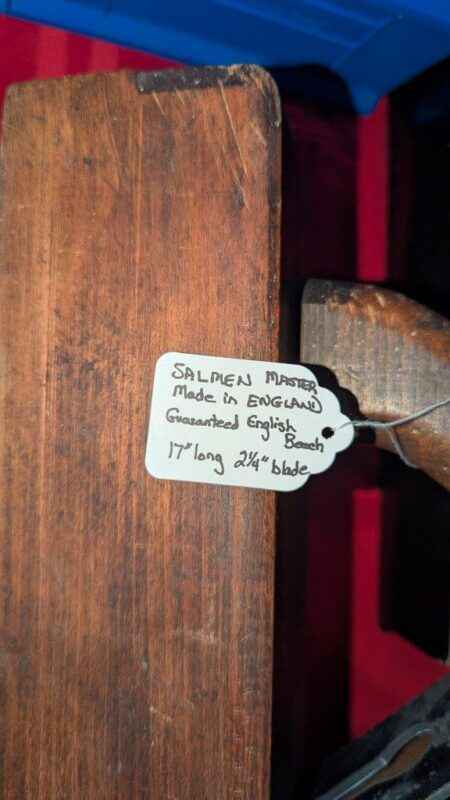 SALMEN MASTER
Made in ENGLAND
Guaranteed English
Beech
17" long 2¼" blade